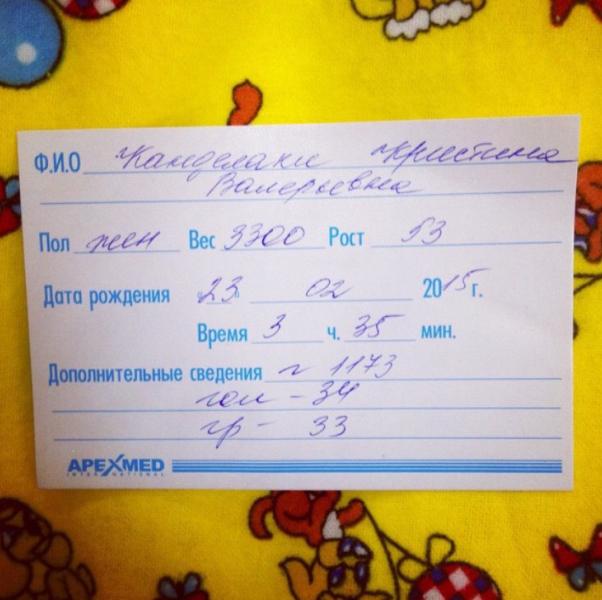 Ф.И.О Канделаки Кристина
Валерьевна
Пол жен Вес 3300 Рост 53
Дата рождения 23 02 2015 г.
Время 3 ч. 35 мин.
Дополнительные сведения г 1173
гол - 34
гр - 33
APEXMED
INTERNATIONAL